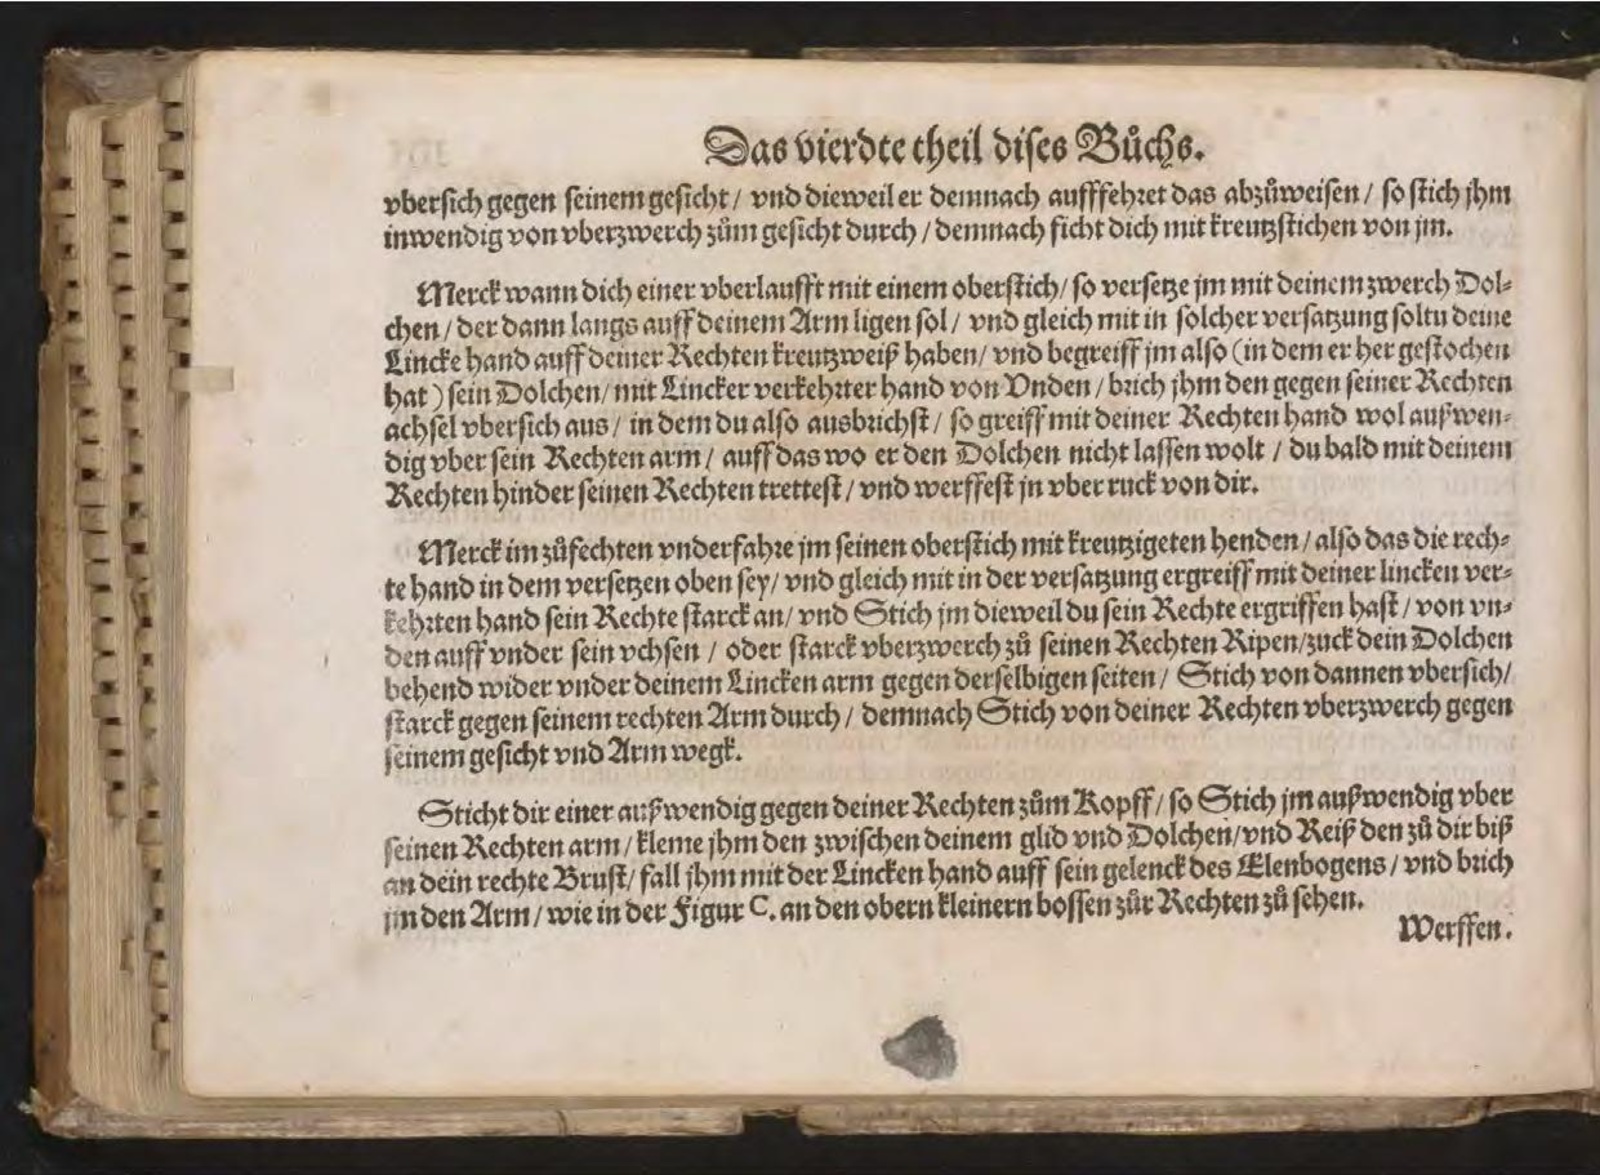 Das vierdte theil dises Bůchs.
vbersich gegen seinem gesicht / vnd dieweil er demnach aufffehret das abzůweisen / so stich jhm
inwendig von vberzwerch zům gesicht durch / demnach ficht dich mit kreutzstichen von jm.
Merck wann dich einer vberlaufft mit einem oberstich / so versetze jm mit deinem zwerch Dol-
chen / der dann langs auff deinem Arm ligen sol / vnd gleich mit in solcher versatzung soltu deine
Lincke hand auff deiner Rechten kreutzweiß haben / vnd begreiff jm also (in dem er her gestochen
hat) sein Dolchen / mit Lincker verkehrter hand von Vnden / brich jhm den gegen seiner Rechten
achsel vbersich aus / in dem du also ausbrichst / so greiff mit deiner Rechten hand wol außwen-
dig vber sein Rechten arm / auff das wo er den Dolchen nicht lassen wolt / du bald mit deinem
Rechten hinder seinen Rechten trettest / vnd werffest jn vber ruck von dir.
Merck im zůfechten vnderfahre jm seinen oberstich mit kreutzigeten henden / also das die rech-
te hand in dem versetzen oben sey / vnd gleich mit in der versatzung ergreiff mit deiner lincken ver-
kehrten hand sein Rechte starck an / vnd Stich jm dieweil du sein Rechte ergriffen hast / von vn-
den auff vnder sein vchsen / oder starck vberzwerch zů seinen Rechten Ripen / zuck dein Dolchen
behend wider vnder deinem Lincken arm gegen derselbigen seiten / Stich von dannen vbersich /
starck gegen seinem rechten Arm durch / demnach Stich von deiner Rechten vberzwerch gegen
seinem gesicht vnd Arm wegk.
Sticht dir einer außwendig gegen deiner Rechten zům Kopff / so Stich jm außwendig vber
seinen Rechten arm / kleme jhm den zwischen deinem glid vnd Dolchen / vnd Reiß den zů dir biß
an dein rechte Brust / fall jhm mit der Lincken hand auff sein gelenck des Elenbogens / vnd brich
jm den Arm / wie in der Figur C. an den obern kleinern bossen zůr Rechten zů sehen.
Werffen.